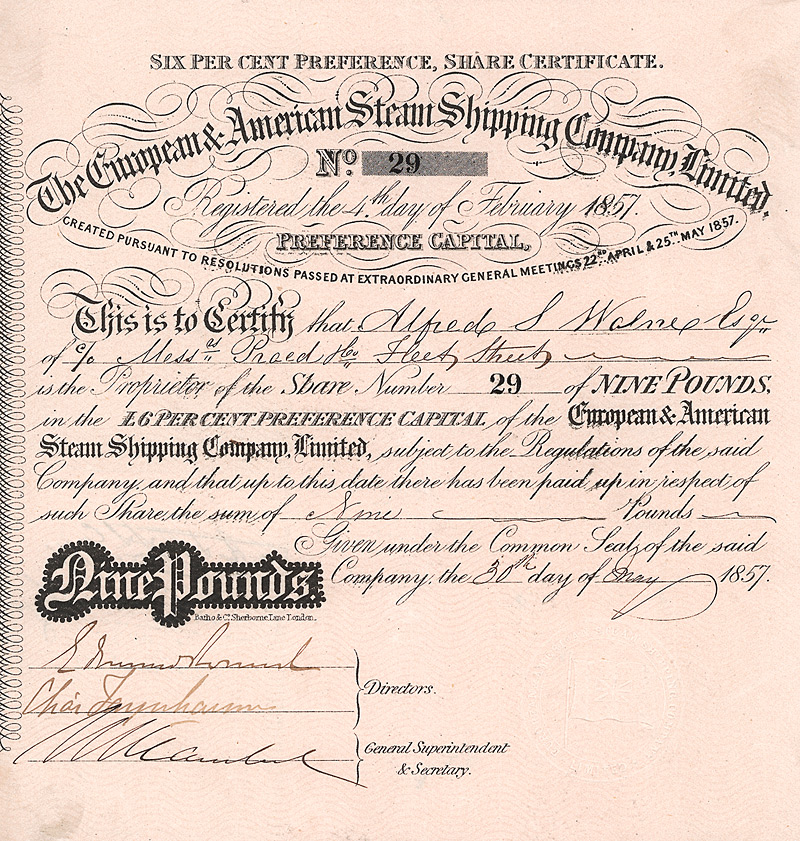 SIX PER CENT PREFERENCE, SHARE CERTIFICATE.
The European & American Steam Shipping Company, Limited.
No. 29
Registered the 4th day of February 1857.
PREFERENCE CAPITAL,
CREATED PURSUANT TO RESOLUTIONS PASSED AT EXTRAORDINARY GENERAL MEETINGS 22ND APRIL & 25TH MAY 1857.
This is to Certify that Alfred S Walne Esqr
of c/o Messrs Praed & Co Fleet Street
is the Proprietor of the Share Number 29 of NINE POUNDS,
in the £6 PER CENT PREFERENCE CAPITAL of the European & American
Steam Shipping Company, Limited, subject to the Regulations of the said
Company, and that up to this date there has been paid up in respect of
such Share, the sum of Nine Pounds
Given under the Common Seal, of the said
Company, the 30th day of May 1857.
Nine Pounds.
Batho & Co. Sherborne Lane London.
Directors.
General Superintendent
& Secretary.